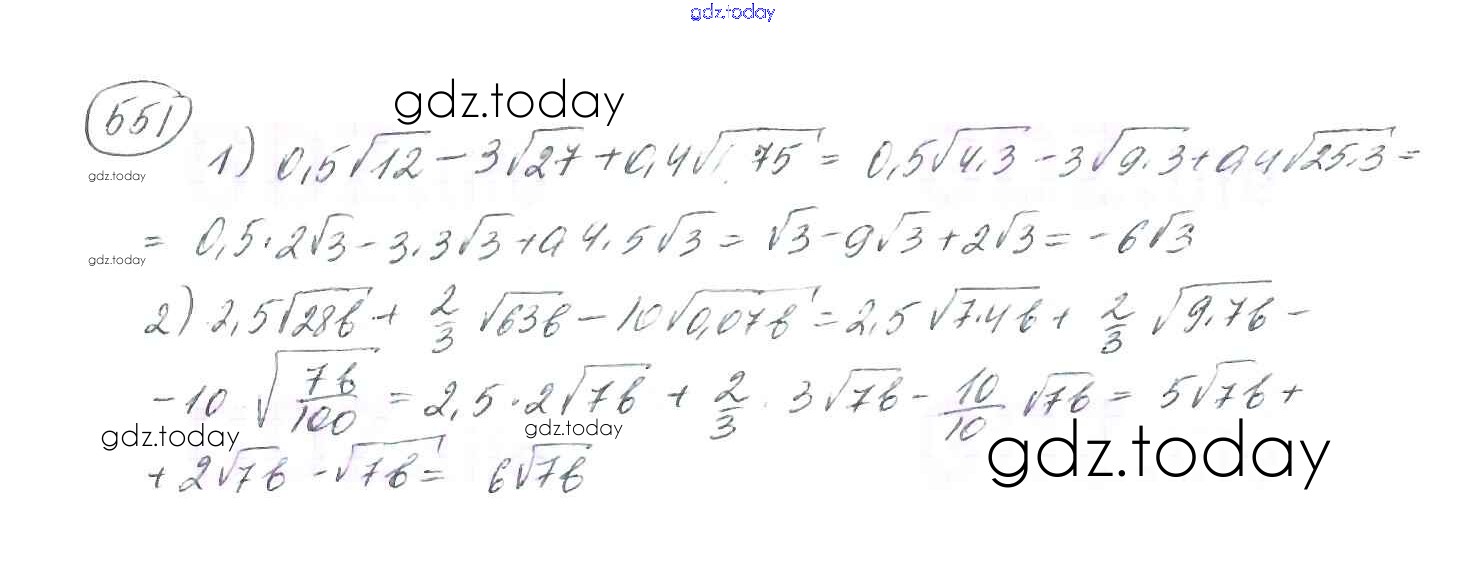 gdz.today
551
gdz.today
1) 0,5√12 - 3√27 + 0,4√75 = 0,5√4·3 - 3√9·3 + 0,4√25·3 =
gdz.today
= 0,5·2√3 - 3·3√3 + 0,4·5√3 = √3 - 9√3 + 2√3 = -6√3
gdz.today
2) 2,5√28b + 2/3 √63b - 10√0,07b = 2,5√7·4b + 2/3 √9·7b -
-10 √7b/100 = 2,5·2√7b + 2/3 · 3√7b - 10/10 √7b = 5√7b +
gdz.today
gdz.today
gdz.today
+ 2√7b - √7b = 6√7b